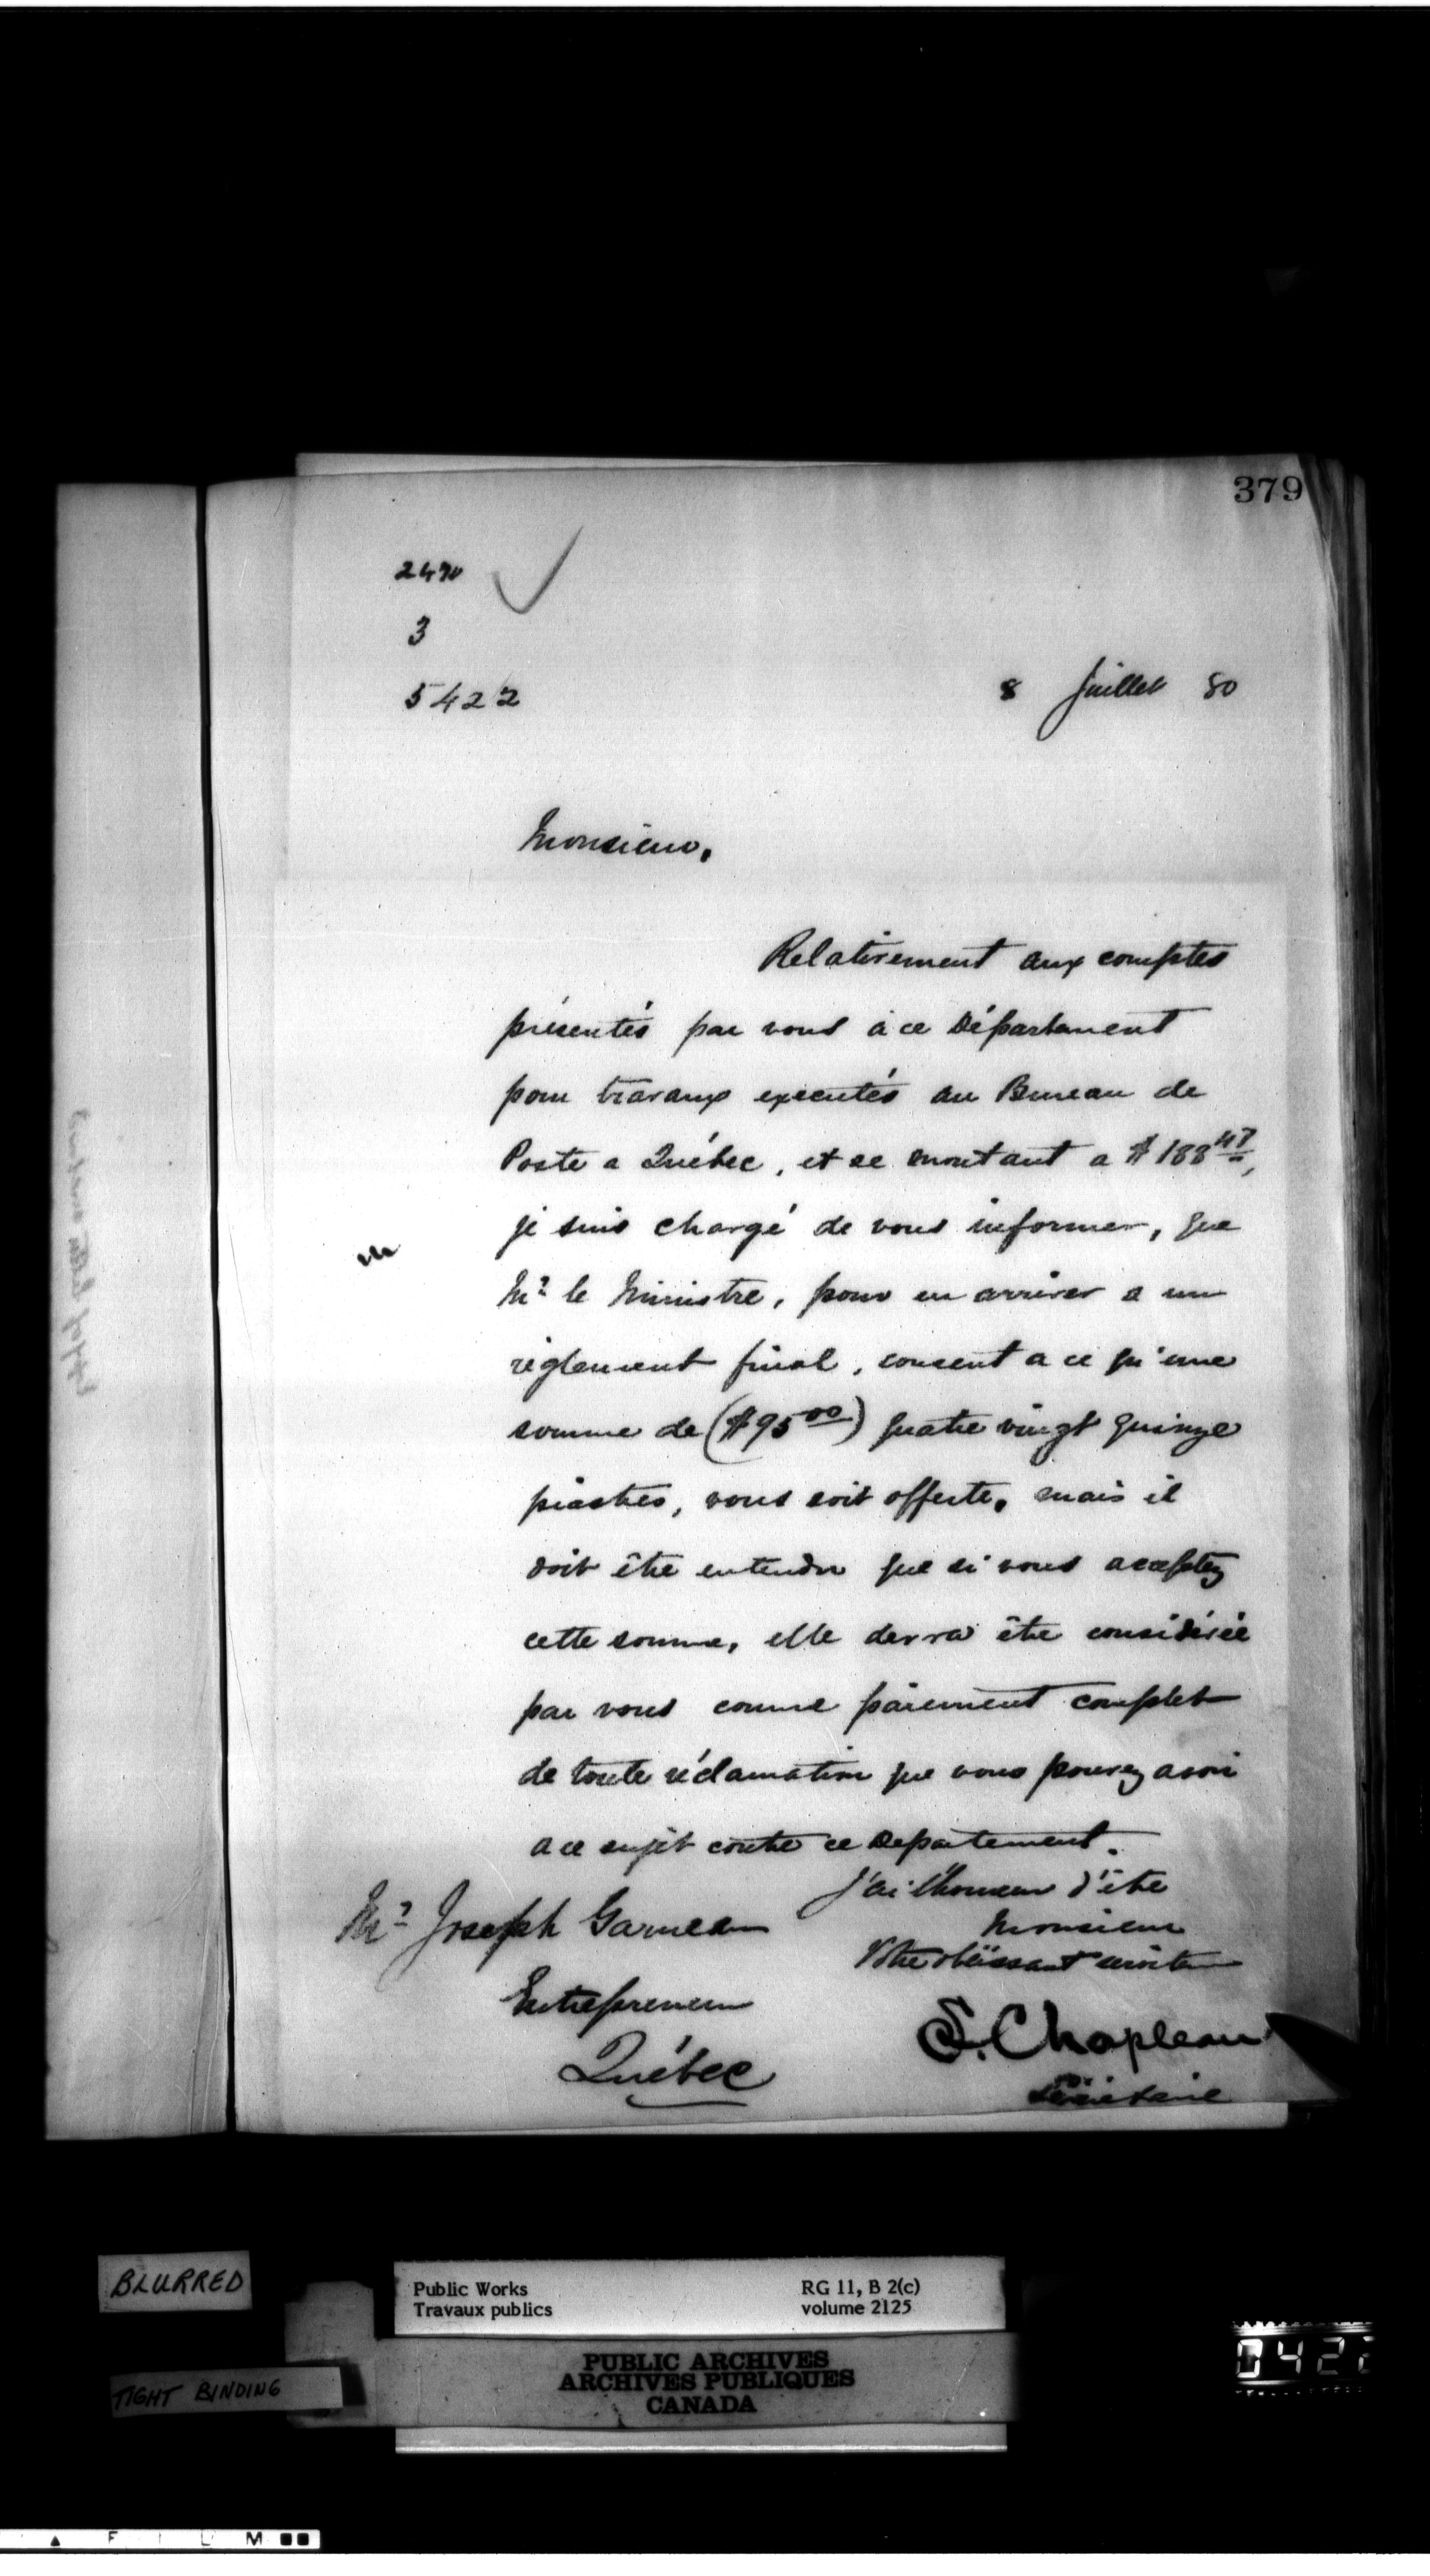 379
2490
3
5422
8 Juillet 80
Monsieur,
Relativement aux comptes
présentés par vous à ce Département
pour travaux executés au Bureau de
Poste a Québec, et se montant a $188 47,
je suis chargé de vous informer, que
Mr le Ministre, pour en arriver a un
règlement final, consent a ce qu'une
somme de ($95 00) quatre vingt quinze
piastres, vous soit offerte, mais il
doit être entendu que si vous acceptez
cette somme, elle devra être considérée
par vous comme paiement complet
de toute réclamation que vous pouvez avoir
a ce sujet contre ce Departement.
J'ai l'honneur d'être
Monsieur
Votre obéissant serviteur
S. Chapleau
Secrétaire
Mr Joseph Garneau
Entrepreneur
Québec
BLURRED
TIGHT BINDING
Public Works
Travaux publics
RG 11, B 2(c)
volume 2125
PUBLIC ARCHIVES
ARCHIVES PUBLIQUES
CANADA
F I L M